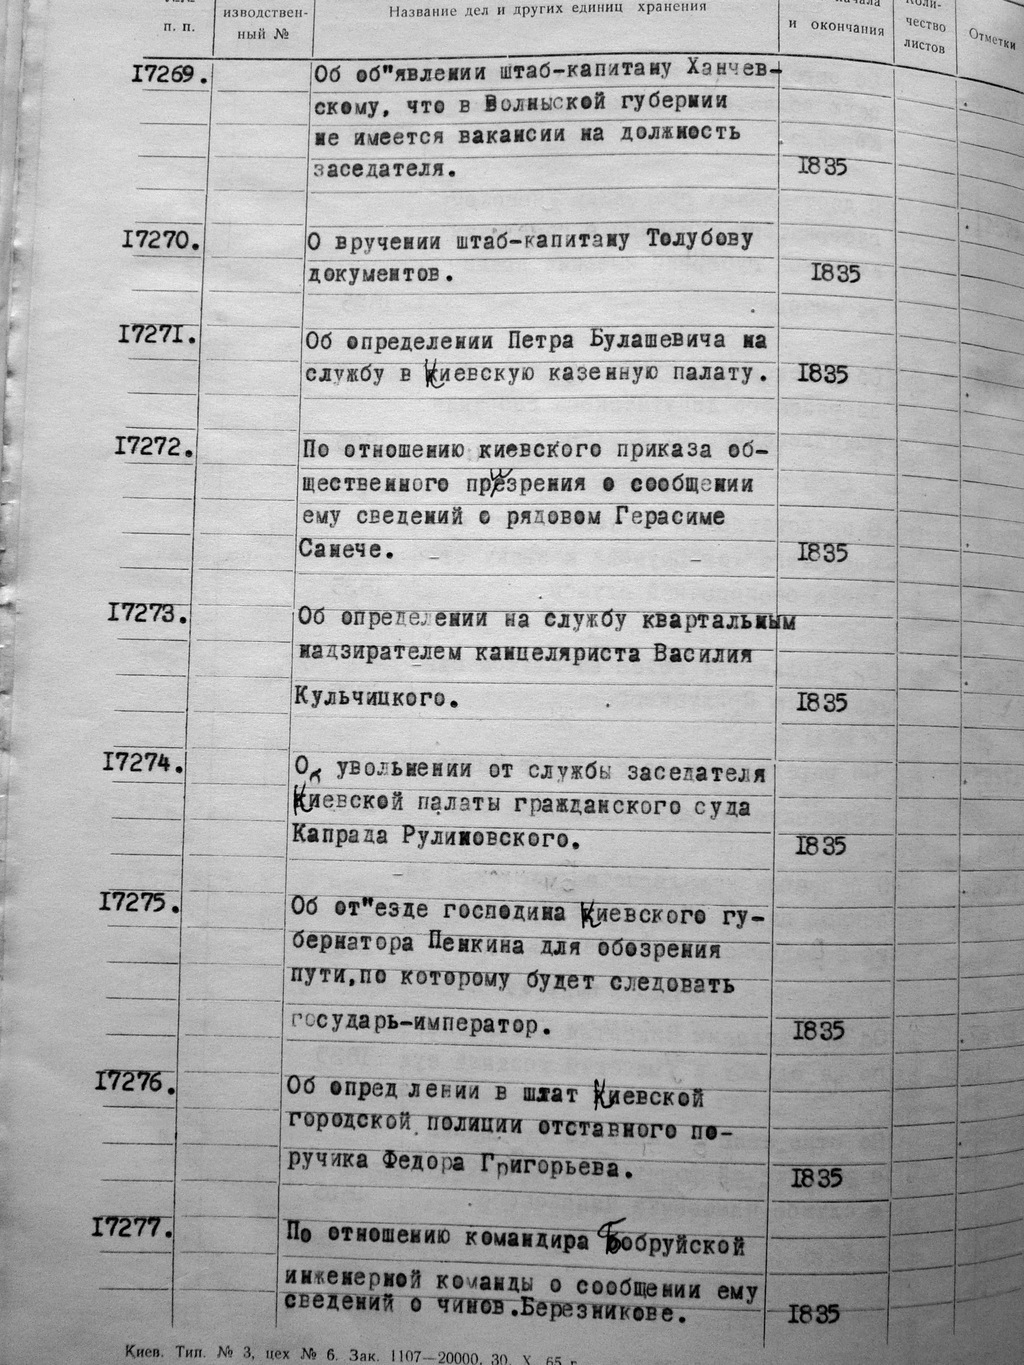 п. п.
изводствен-
ный №
Название дел и других единиц хранения
начала
и окончания
Коли-
чество
листов
Отметки
17269.
Об об"явлении штаб-капитану Ханчев-
скому, что в Волныской губернии
не имеется вакансии на должность
заседателя.
1835
17270.
О вручении штаб-капитану Толубову
документов.
1835
17271.
Об определении Петра Булашевича на
службу в Киевскую казенную палату.
1835
17272.
По отношению киевского приказа об-
щественного призрения о сообщении
ему сведений о рядовом Герасиме
Самече.
1835
17273.
Об определении на службу квартальным
надзирателем канцеляриста Василия
Кульчицкого.
1835
17274.
О увольнении от службы заседателя
Киевской палаты гражданского суда
Капрада Рулиновского.
1835
17275.
Об от"езде господина Киевского гу-
бернатора Пенкина для обозрения
пути,по которому будет следовать
государь-император.
1835
17276.
Об опред лении в штат Киевской
городской полиции отставного по-
ручика Федора Григорьева.
1835
17277.
По отношению командира Бобруйской
инженерной команды о сообщении ему
сведений о чинов.Березникове.
1835
Киев. Тип. № 3, цех № 6. Зак. 1107—20000. 30. X. 65 г.